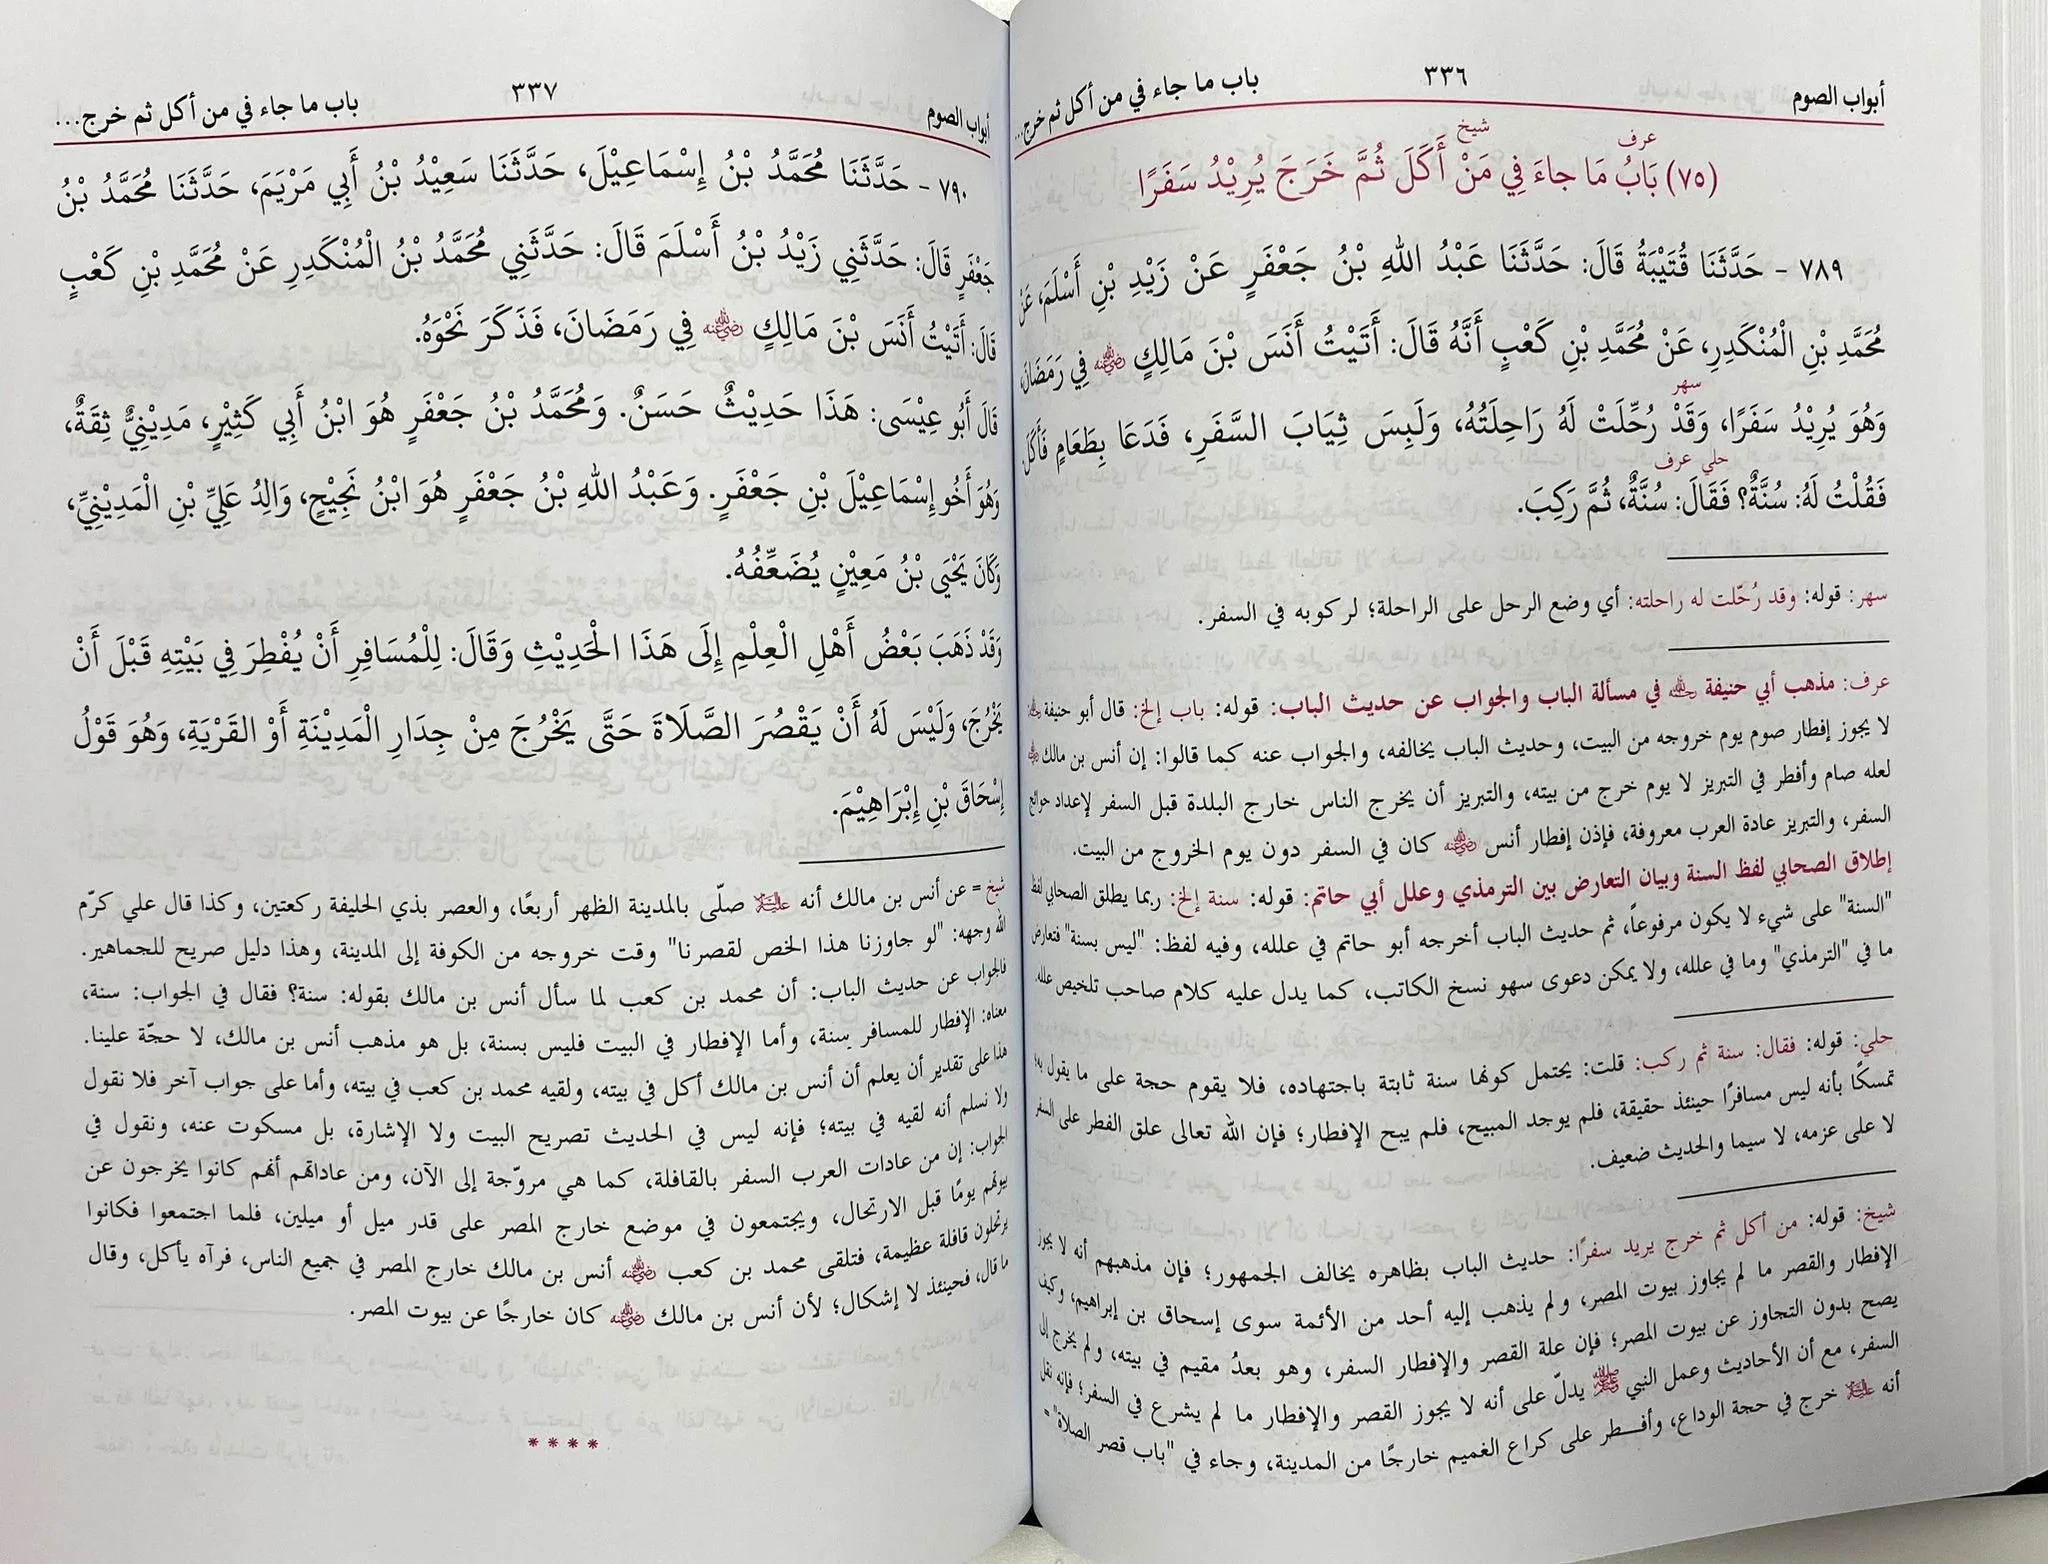 أبواب الصوم ٣٣٦ باب ما جاء في من أكل ثم خرج...
عرف شيخ
(٧٥) بَابُ مَا جاءَ فِي مَنْ أَكَلَ ثُمَّ خَرَجَ يُرِيْدُ سَفَرًا
٧٨٩ - حَدَّثَنَا قُتَيْبَةُ قَالَ: حَدَّثَنَا عَبْدُ اللهِ بْنُ جَعْفَرٍ عَنْ زَيْدِ بْنِ أَسْلَمَ، عَنْ
مُحَمَّدِ بْنِ الْمُنْكَدِرِ، عَنْ مُحَمَّدِ بْنِ كَعْبٍ أَنَّهُ قَالَ: أَتَيْتُ أَنَسَ بْنَ مَالِكٍ ﵁ فِي رَمَضَانَ،
سهر
وَهُوَ يُرِيْدُ سَفَرًا، وَقَدْ رُحِّلَتْ لَهُ رَاحِلَتُهُ، وَلَبِسَ ثِيَابَ السَّفَرِ، فَدَعَا بِطَعَامٍ فَأَكَلَ
حلي عرف
فَقُلْتُ لَهُ: سُنَّةٌ؟ فَقَالَ: سُنَّةٌ، ثُمَّ رَكِبَ.
سهر: قوله: وقد رُحّلت له راحلته: أي وضع الرحل على الراحلة؛ لركوبه في السفر.
عرف: مذهب أبي حنيفة ﵀ في مسألة الباب والجواب عن حديث الباب: قوله: باب إلخ: قال أبو حنيفة ﵀
لا يجوز إفطار صوم يوم خروجه من البيت، وحديث الباب يخالفه، والجواب عنه كما قالوا: إن أنس بن مالك ﵁
لعله صام وأفطر في التبريز لا يوم خرج من بيته، والتبريز أن يخرج الناس خارج البلدة قبل السفر لإعداد حوائج
السفر، والتبريز عادة العرب معروفة، فإذن إفطار أنس ﵁ كان في السفر دون يوم الخروج من البيت.
إطلاق الصحابي لفظ السنة وبيان التعارض بين الترمذي وعلل أبي حاتم: قوله: سنة إلخ: ربما يطلق الصحابي لفظ
"السنة" على شيء لا يكون مرفوعاً، ثم حديث الباب أخرجه أبو حاتم في علله، وفيه لفظ: "ليس بسنة" فتعارض
ما في "الترمذي" وما في علله، ولا يمكن دعوى سهو نسخ الكاتب، كما يدل عليه كلام صاحب تلخيص علله.
حلي: قوله: فقال: سنة ثم ركب: قلت: يحتمل كونها سنة ثابتة باجتهاده، فلا يقوم حجة على ما يقول به؛
تمسكًا بأنه ليس مسافرًا حينئذ حقيقة، فلم يوجد المبيح، فلم يبح الإفطار؛ فإن الله تعالى علق الفطر على السفر
لا على عزمه، لا سيما والحديث ضعيف.
شيخ: قوله: من أكل ثم خرج يريد سفرًا: حديث الباب بظاهره يخالف الجمهور؛ فإن مذهبهم أنه لا يجوز
الإفطار والقصر ما لم يجاوز بيوت المصر، ولم يذهب إليه أحد من الأئمة سوى إسحاق بن إبراهيم، وكيف
يصح بدون التجاوز عن بيوت المصر؛ فإن علة القصر والإفطار السفر، وهو بعدُ مقيم في بيته، ولم يخرج إلى
السفر، مع أن الأحاديث وعمل النبي ﷺ يدلّ على أنه لا يجوز القصر والإفطار ما لم يشرع في السفر؛ فإنه نقل
أنه ﵇ خرج في حجة الوداع، وأفطر على كراع الغميم خارجًا من المدينة، وجاء في "باب قصر الصلاة" =
أبواب الصوم ٣٣٧ باب ما جاء في من أكل ثم خرج...
٧٩٠ - حَدَّثَنَا مُحَمَّدُ بْنُ إِسْمَاعِيْلَ، حَدَّثَنَا سَعِيْدُ بْنُ أَبِي مَرْيَمَ، حَدَّثَنَا مُحَمَّدُ بْنُ
جَعْفَرٍ قَالَ: حَدَّثَنِي زَيْدُ بْنُ أَسْلَمَ قَالَ: حَدَّثَنِي مُحَمَّدُ بْنُ الْمُنْكَدِرِ عَنْ مُحَمَّدِ بْنِ كَعْبٍ
قَالَ: أَتَيْتُ أَنَسَ بْنَ مَالِكٍ ﵁ فِي رَمَضَانَ، فَذَكَرَ نَحْوَهُ.
قَالَ أَبُو عِيْسَى: هَذَا حَدِيْثٌ حَسَنٌ. وَمُحَمَّدُ بْنُ جَعْفَرٍ هُوَ ابْنُ أَبِي كَثِيْرٍ، مَدِيْنِيٌّ ثِقَةٌ،
وَهُوَ أَخُو إِسْمَاعِيْلَ بْنِ جَعْفَرٍ. وَعَبْدُ اللهِ بْنُ جَعْفَرٍ هُوَ ابْنُ نَجِيْحٍ، وَالِدُ عَلِيِّ بْنِ الْمَدِيْنِيِّ،
وَكَانَ يَحْيَى بْنُ مَعِيْنٍ يُضَعِّفُهُ.
وَقَدْ ذَهَبَ بَعْضُ أَهْلِ الْعِلْمِ إِلَى هَذَا الْحَدِيْثِ وَقَالَ: لِلْمُسَافِرِ أَنْ يُفْطِرَ فِي بَيْتِهِ قَبْلَ أَنْ
يَخْرُجَ، وَلَيْسَ لَهُ أَنْ يَقْصُرَ الصَّلَاةَ حَتَّى يَخْرُجَ مِنْ جِدَارِ الْمَدِيْنَةِ أَوْ القَرْيَةِ، وَهُوَ قَوْلُ
إِسْحَاقَ بْنِ إِبْرَاهِيْمَ.
شيخ = عن أنس بن مالك أنه ﵇ صلّى بالمدينة الظهر أربعًا، والعصر بذي الحليفة ركعتين، وكذا قال علي كرّم
الله وجهه: "لو جاوزنا هذا الخص لقصرنا" وقت خروجه من الكوفة إلى المدينة، وهذا دليل صريح للجماهير.
فالجواب عن حديث الباب: أن محمد بن كعب لما سأل أنس بن مالك بقوله: سنة؟ فقال في الجواب: سنة،
معناه: الإفطار للمسافر سنة، وأما الإفطار في البيت فليس بسنة، بل هو مذهب أنس بن مالك، لا حجّة علينا.
هذا على تقدير أن يعلم أن أنس بن مالك أكل في بيته، ولقيه محمد بن كعب في بيته، وأما على جواب آخر فلا نقول
ولا نسلم أنه لقيه في بيته؛ فإنه ليس في الحديث تصريح البيت ولا الإشارة، بل مسكوت عنه، ونقول في
الجواب: إن من عادات العرب السفر بالقافلة، كما هي مروّجة إلى الآن، ومن عاداتهم أنهم كانوا يخرجون عن
بيوتهم يومًا قبل الارتحال، ويجتمعون في موضع خارج المصر على قدر ميل أو ميلين، فلما اجتمعوا فكانوا
يرتحلون قافلة عظيمة، فتلقى محمد بن كعب ﵁ أنس بن مالك خارج المصر في جميع الناس، فرآه يأكل، وقال
ما قال، فحينئذ لا إشكال؛ لأن أنس بن مالك ﵁ كان خارجًا عن بيوت المصر.
* * * *